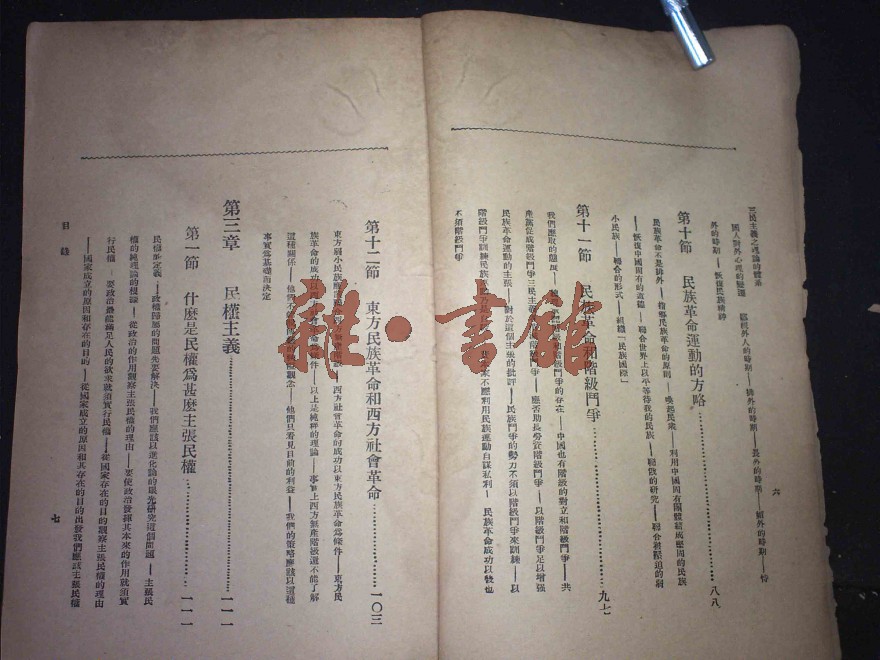 三民主義之理論的體系
六
國人對外心理的變遷 鄙視外人的時期——排外的時期——畏外的時期——媚外的時期——恃
外的時期——恢復民族精神
第十節 民族革命運動的方略 八八
民族革命不是排外——指導民族革命的原則——喚起民衆——利用中國固有團體結成堅固的民族
——恢復中國固有的道德——聯合世界上以平等待我的民族——聯俄的研究——聯合被壓迫的弱
小民族——聯合的形式——組織「民族國際」
第十一節 民族革命和階級鬥爭 九七
我們應取的態度 階級鬥爭的存在——中國也有階級的對立和階級鬥爭——共
產黨促成階級鬥爭三民主義 階級鬥爭——應否助長勞資階級鬥爭——以階級鬥爭足以增强
民族革命運動的主張——對於這個主張的批評——民族鬥爭的勢力不須以階級鬥爭來訓練——以
階級鬥爭訓練民族 資本家不應利用民族運動自謀私利—民族革命成功以後也
不須階級鬥爭
第十二節 東方民族革命和西方社會革命 一〇三
東方弱小民族應 西方社會革命的成功以東方民族革命爲條件——東方民
族革命的成功以西方社會革命爲條件——以上是純粹的理論——事實上西方無產階級還不能了解
這種關係——他們不 觀念——他們只看見目前的利益——我們的策略應該以這種
事實爲基礎而決定
第三章 民權主義 一一一
第一節 什麼是民權爲甚麼主張民權 一一一
民權的定義——政權歸屬的問題先要解決——我們應該以進化論的眼光研究這個問題——主張民
權的純理論的根據——從政治的作用觀察主張民權的理由——要使政治發揮其本來的作用就須實
行民權——要政治最能滿足人民的欲求就須實行民權——從國家存在的目的觀察主張民權的理由
——國家成立的原因和存在的目的——從國家成立的原因和其存在的目的出發我們應該主張民權
目錄
七
雜·書館